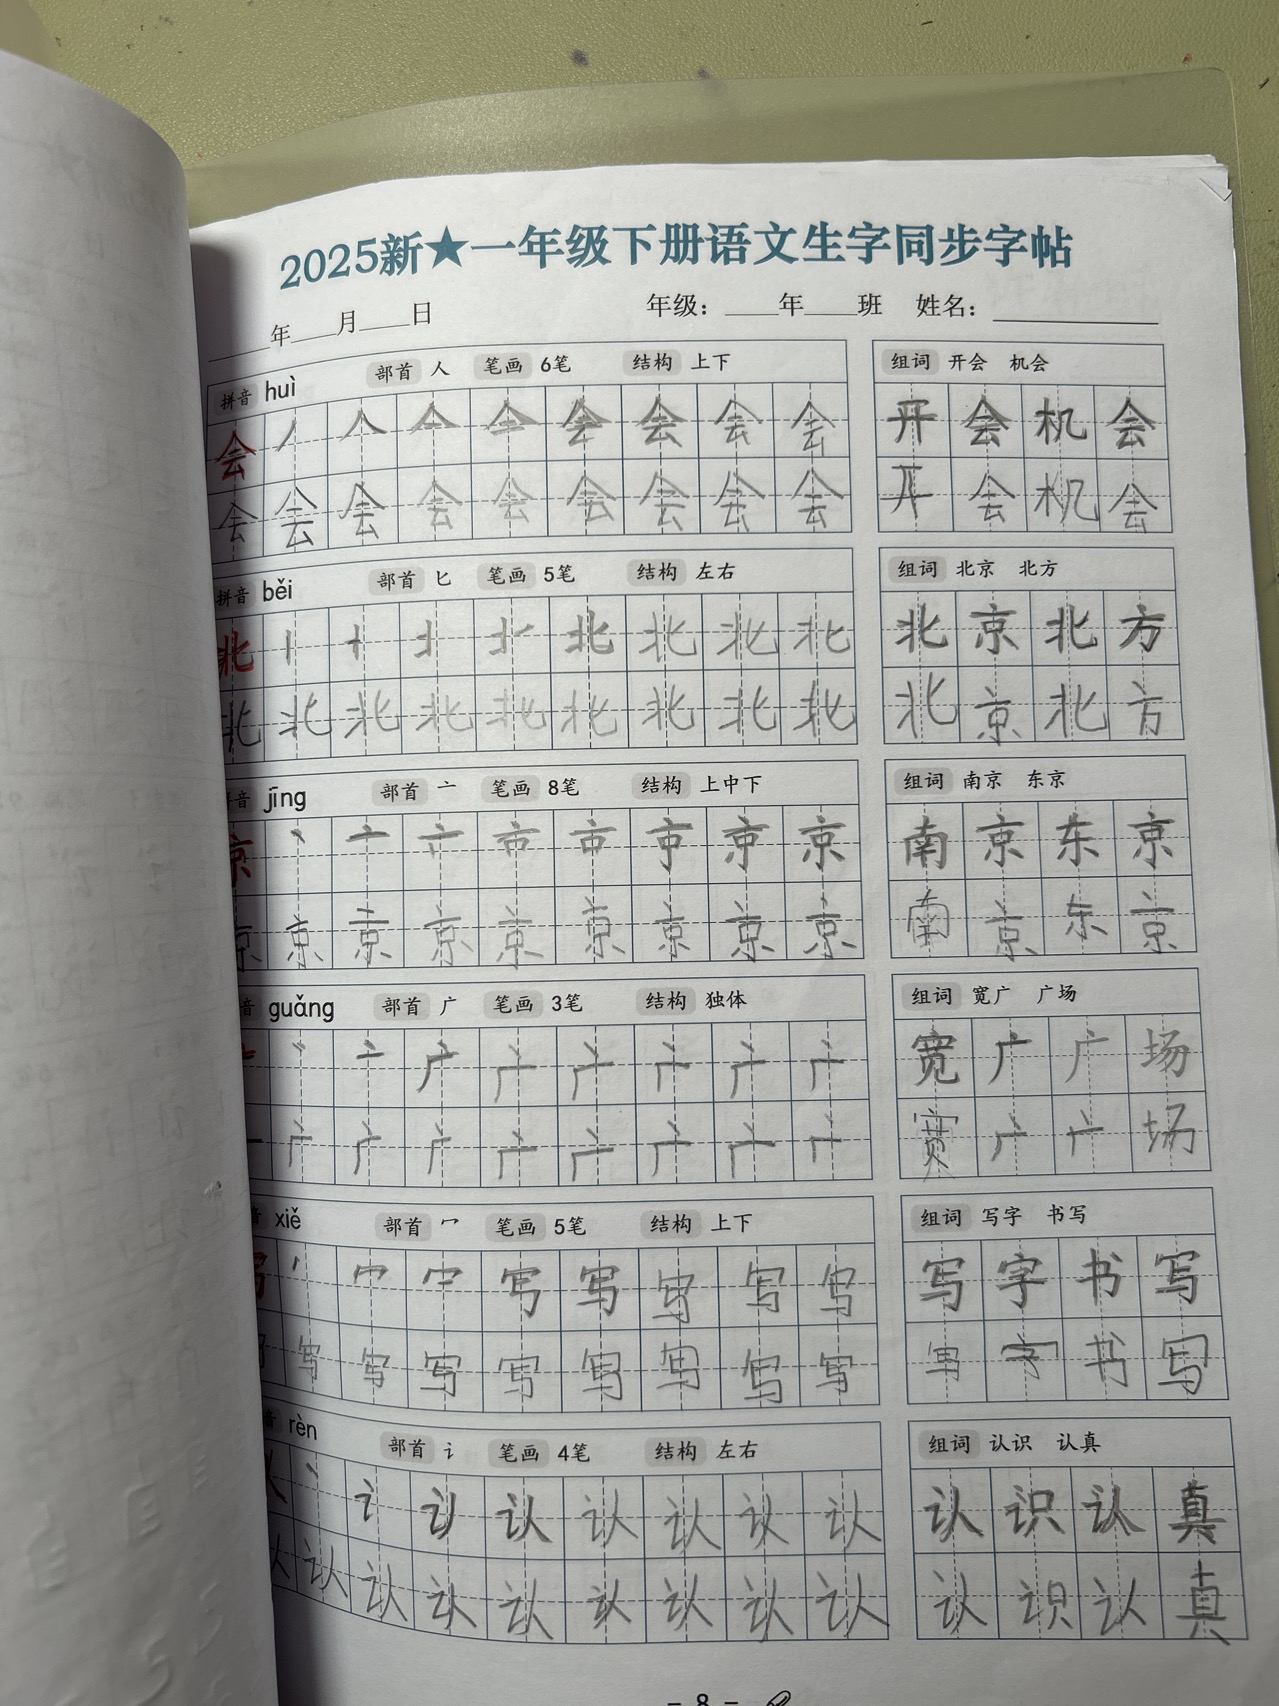 2025新★一年级下册语文生字同步字帖
____年____月____日 年级：____年____班 姓名：________
拼音 huì 部首 人 笔画 6笔 结构 上下 组词 开会 机会
会 会 会 会 会 开 会 机 会
会 会 会 会 会 会 会 会 会 开 会 机 会
拼音 běi 部首 匕 笔画 5笔 结构 左右 组词 北京 北方
北 北 北 北 北 北 京 北 方
北 北 北 北 北 北 北 北 北 北 京 北 方
音 jīng 部首 亠 笔画 8笔 结构 上中下 组词 南京 东京
京 亠 京 南 京 东 京
京 京 京 京 京 京 京 京 京 南 京 东 京
音 guǎng 部首 广 笔画 3笔 结构 独体 组词 宽广 广场
亠 广 广 广 广 广 广 宽 广 广 场
广 广 广 广 广 广 广 广 宽 广 广 场
音 xiě 部首 冖 笔画 5笔 结构 上下 组词 写字 书写
写 冖 写 写 写 写 写 字 书 写
写 写 写 写 写 写 写 写 写 写 字 书 写
音 rèn 部首 讠 笔画 4笔 结构 左右 组词 认识 认真
讠 认 认 认 认 认 认 识 认 真
认 认 认 认 认 认 认 认 认 认 识 认 真
- 8 -